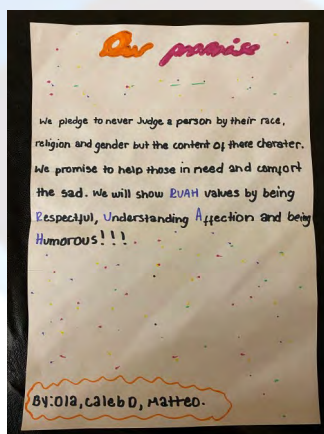 Our promise
We pledge to never Judge a person by their race,
religion and gender but the content of there charater.
We promise to help those in need and comfort
the sad. We will show RUAH values by being
Respectful, Understanding Affection and being
Humorous!!!.
By:Ola, Caleb D, Matteo.